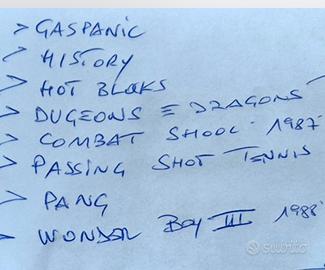 > GASPANIC
> HISTORY
> HOT BLOKS
> DUGEONS E DRAGONS
> COMBAT SHOOL 1987
> PASSING SHOT TENNIS
> PANG
> WONDER BOY III 1988
subito